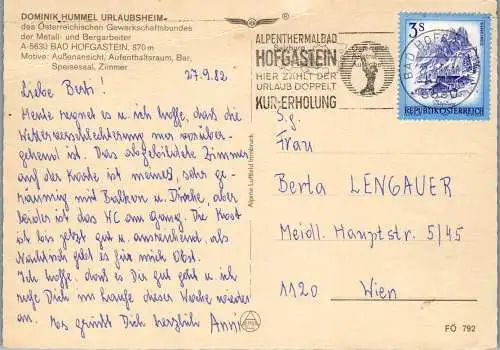 DOMINIK HUMMEL URLAUBSHEIM
des Österreichischen Gewerkschaftsbundes
der Metall- und Bergarbeiter
A-5630 BAD HOFGASTEIN, 870 m
Motive: Außenansicht, Aufenthaltsraum, Bar,
Speisesaal, Zimmer
27.9.82
Liebe Berta!
Heute regnet es u. ich hoffe, dass die
Wetterverschlechterung nur vorüber-
gehend ist. Das abgebildete Zimmer
auf der Karte ist meines, sehr ge-
räumig mit Balkon u. Dusche, aber
leider ist das WC am Gang. Die Kost
ist bis jetzt gut u. ausreichend, als
Nachtisch gibt es für mich Obst.
Ich hoffe, dass es Dir gut geht u. ich
rufe Dich im Laufe dieser Woche wieder
an. Es grüßt Dich herzlich Anni
Alpine Luftbild Innsbruck
ALPENTHERMALBAD
Salzburg
HOFGASTEIN
HIER ZÄHLT DER
URLAUB DOPPELT
KUR-ERHOLUNG
BAD HOFG
5630
3 S
REPUBLIK ÖSTERREICH
S.g.
Frau
Berta LENGAUER
Meidl. Hauptstr. 5/45
1120 Wien
FÖ 792